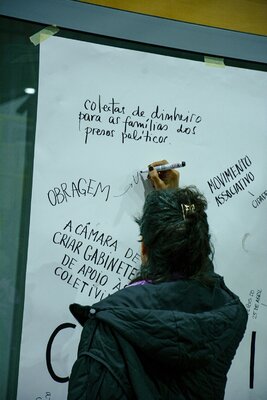 coletas de dinheiro
para as famílias dos
presos políticos.
OBRAGEM
MOVIMENTO
ASSOCIATIVO
A CÂMARA DE
CRIAR GABINETE
DE APOIO A
COLETIV
25 DE ABRIL